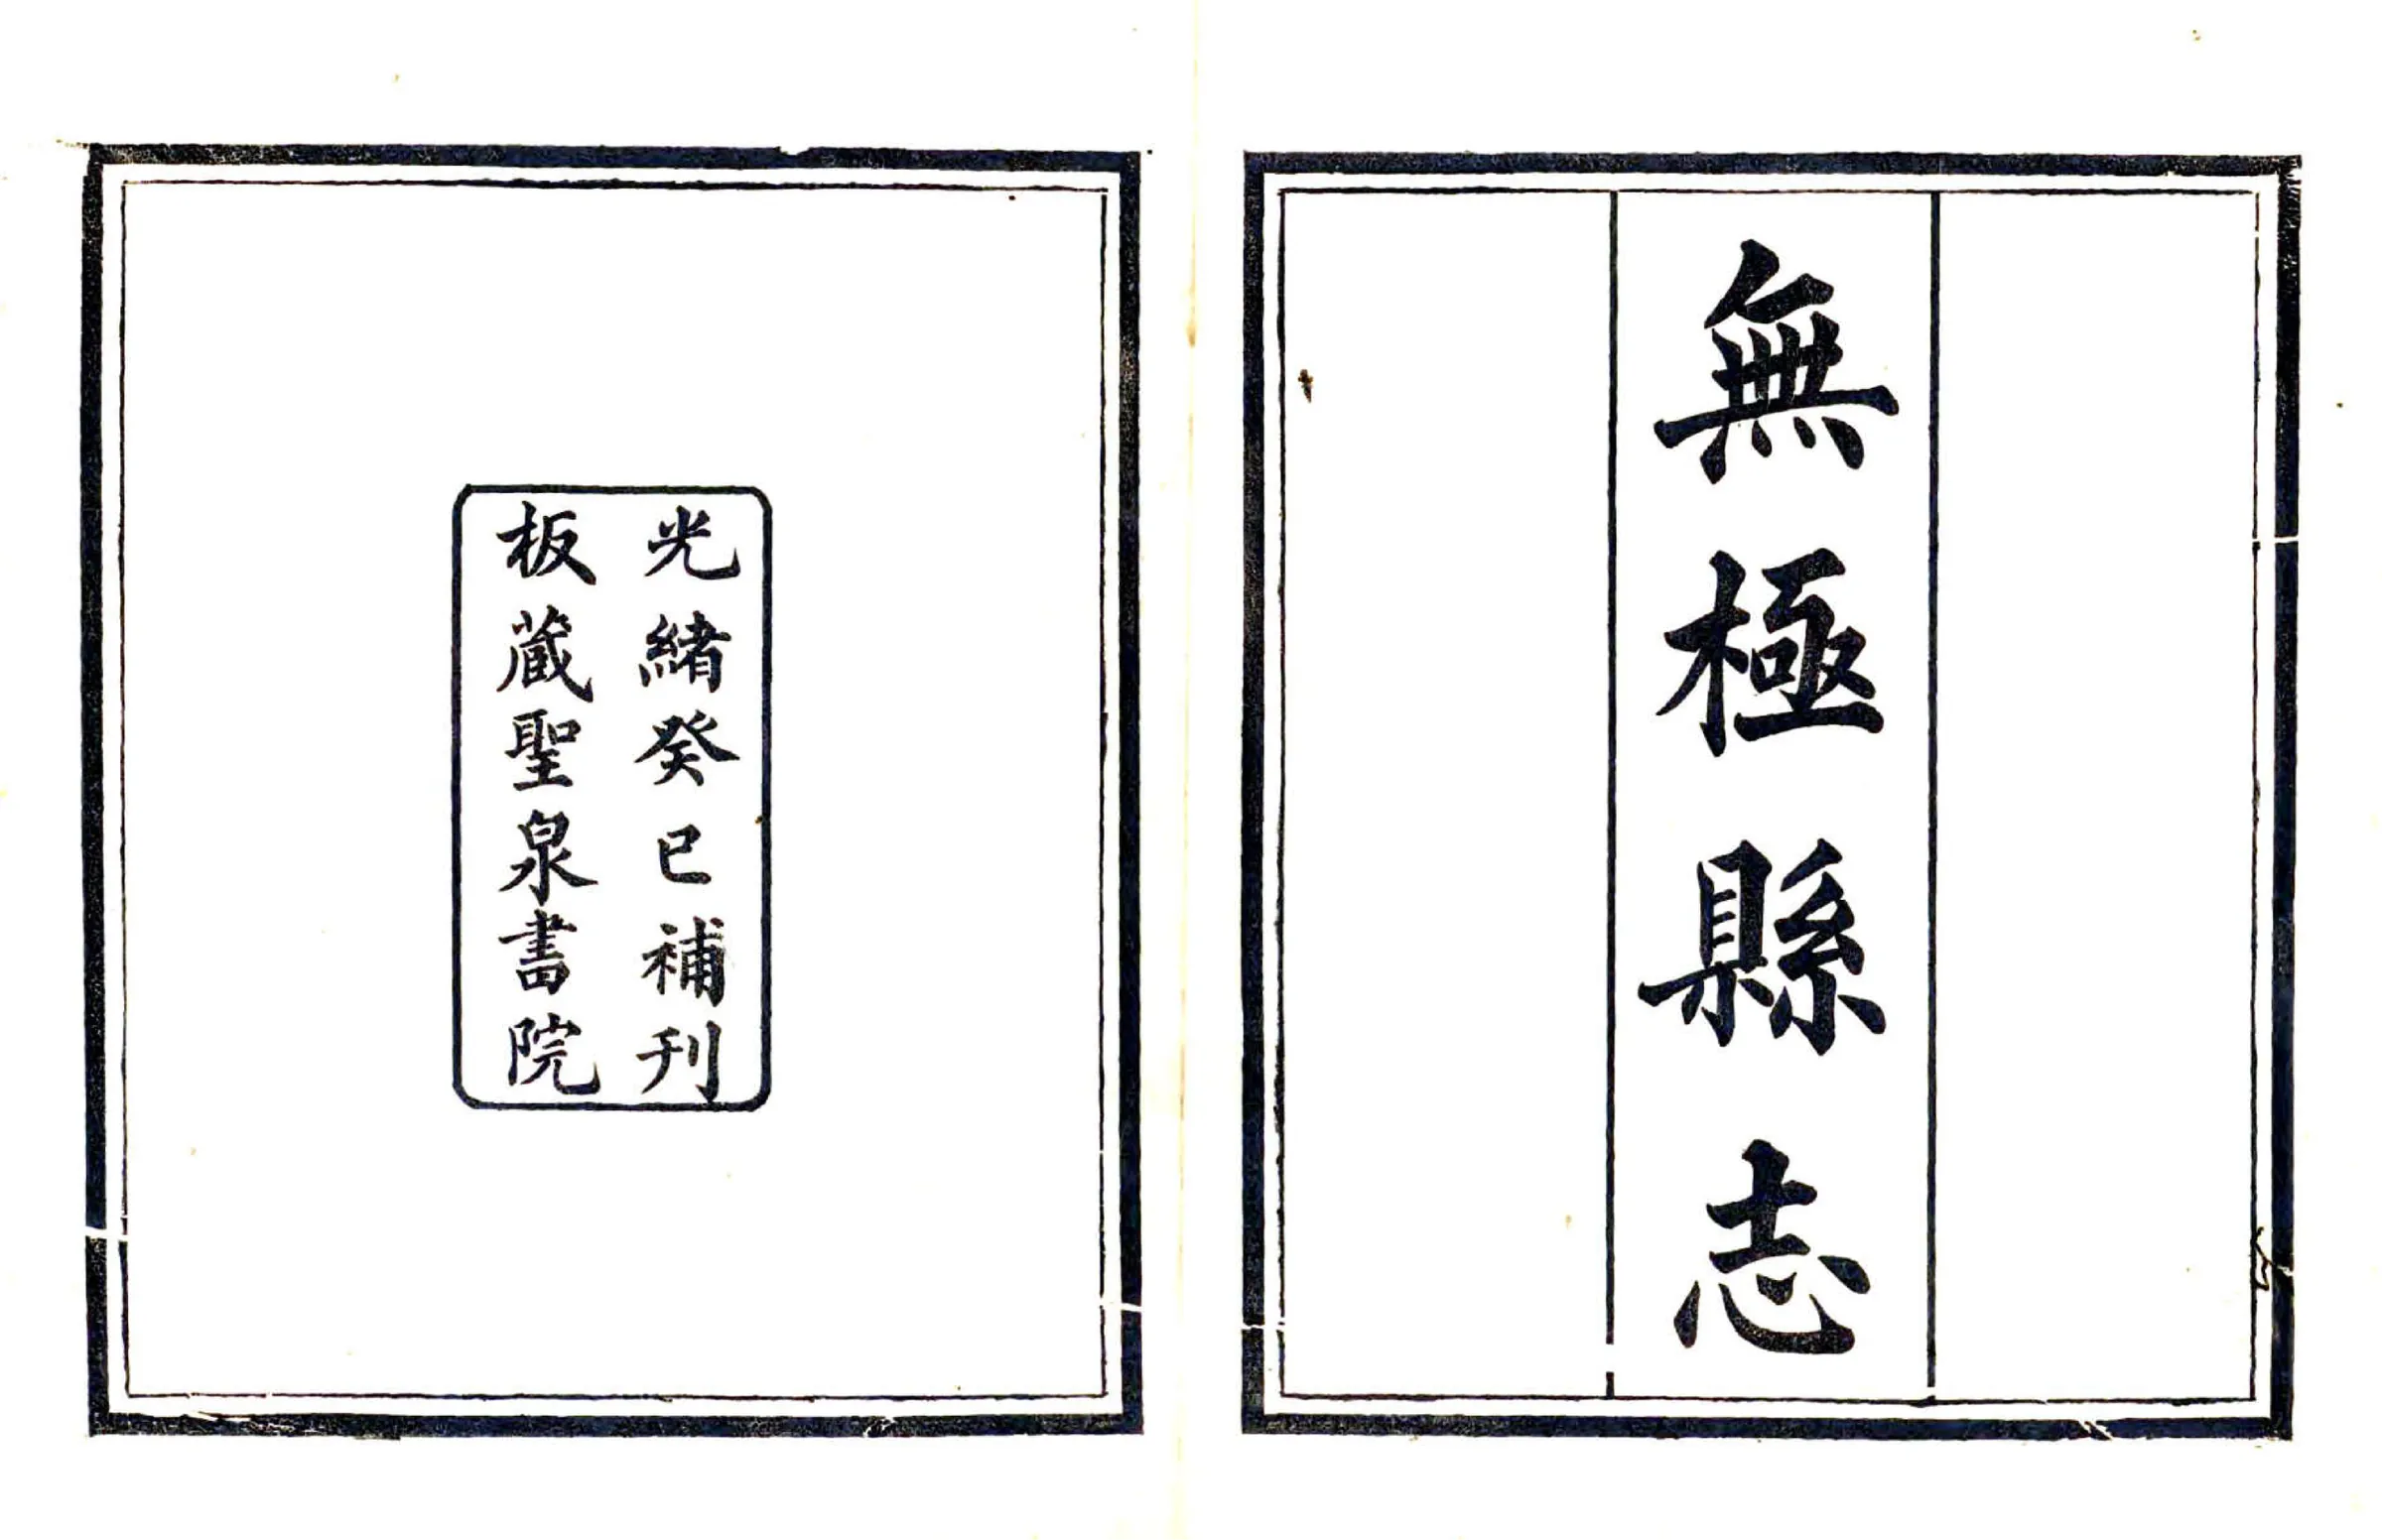 無極縣志
光緒癸巳補刊
板蔵聖泉書院